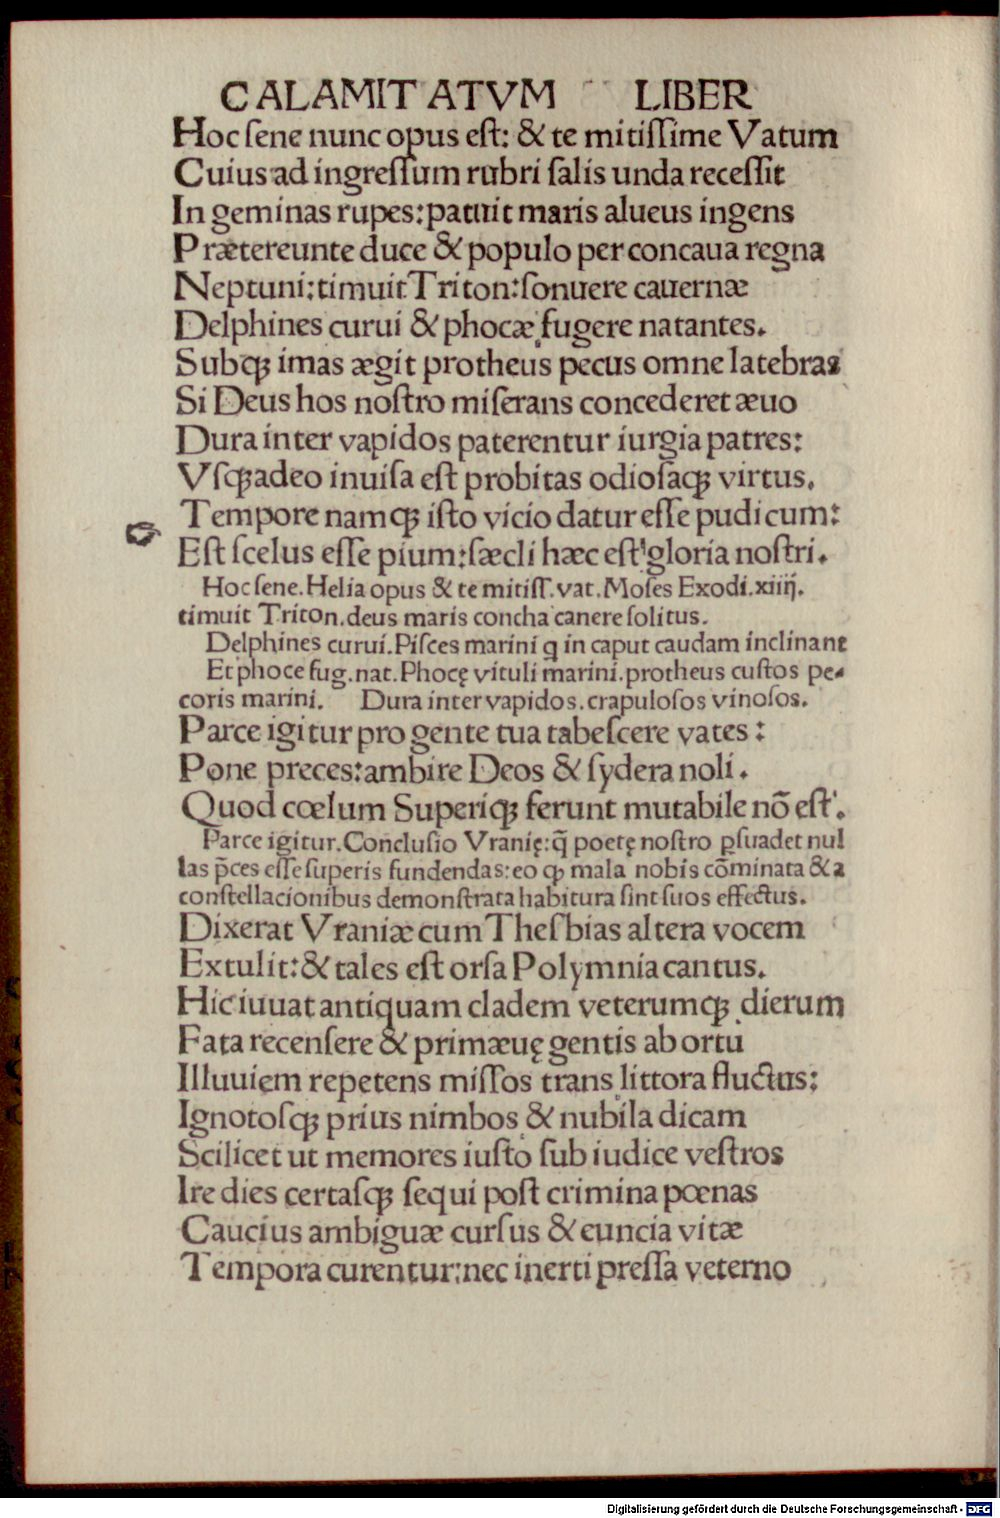 CALAMITATVM LIBER
Hoc ſene nunc opus eſt: & te mitiſſime Vatum
Cuius ad ingreſſum rubri ſalis unda receſſit
In geminas rupes: patuit maris alueus ingens
Prætereunte duce & populo per concaua regna
Neptuni: timuit Triton: ſonuere cauernæ
Delphines curui & phocæ fugere natantes.
Subqꝫ imas ægit protheus pecus omne latebras
Si Deus hos noſtro miſerans concederet æuo
Dura inter vapidos paterentur iurgia patres:
Vſqꝫ adeo inuiſa eſt probitas odioſaqꝫ virtus.
Tempore namqꝫ iſto vicio datur eſſe pudicum:
Eſt ſcelus eſſe pium: ſæcli hæc eſt gloria noſtri.
Hoc ſene. Helia opus & te mitiſſ. vat. Moſes Exodi. xiiij.
timuit Triton. deus maris concha canere ſolitus.
Delphines curui. Piſces marini q in caput caudam inclinant
Et phoce fug. nat. Phocę vituli marini. protheus cuſtos pe-
coris marini. Dura inter vapidos. crapuloſos vinoſos.
Parce igitur pro gente tua tabeſcere vates:
Pone preces: ambire Deos & ſydera noli.
Quod cœlum Superiqꝫ ferunt mutabile nō eſt.
Parce igitur. Concluſio Vranię: q̄ poetę noſtro ꝑſuadet nul
las p̄ces eſſe ſuperis fundendas: eo qꝫ mala nobis cōminata & a
conſtellacionibus demonſtrata habitura ſint ſuos effectus.
Dixerat Vraniæ cum Theſbias altera vocem
Extulit: & tales eſt orſa Polymnia cantus.
Hic iuuat antiquam cladem veterumqꝫ dierum
Fata recenſere & primæuę gentis ab ortu
Illuuiem repetens miſſos trans littora fluctus:
Ignotoſqꝫ prius nimbos & nubila dicam
Scilicet ut memores iuſto ſub iudice veſtros
Ire dies certaſqꝫ ſequi poſt crimina pœnas
Caucius ambiguæ curſus & euncia vitæ
Tempora curentur: nec inerti preſſa veterno
Digitalisierung gefördert durch die Deutsche Forschungsgemeinschaft - DFG